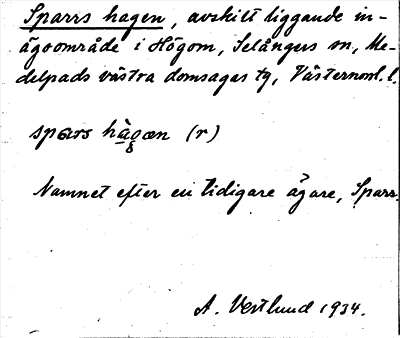 Sparrs hagen, avskilt liggande in-
ägoområde i Högom, Selångers sn, Me-
delpads västra domsagas tg, Västernorrl. l.
spars hàgæn (r)
Namnet efter en tidigare ägare, Sparr.
A. Vestlund 1934.